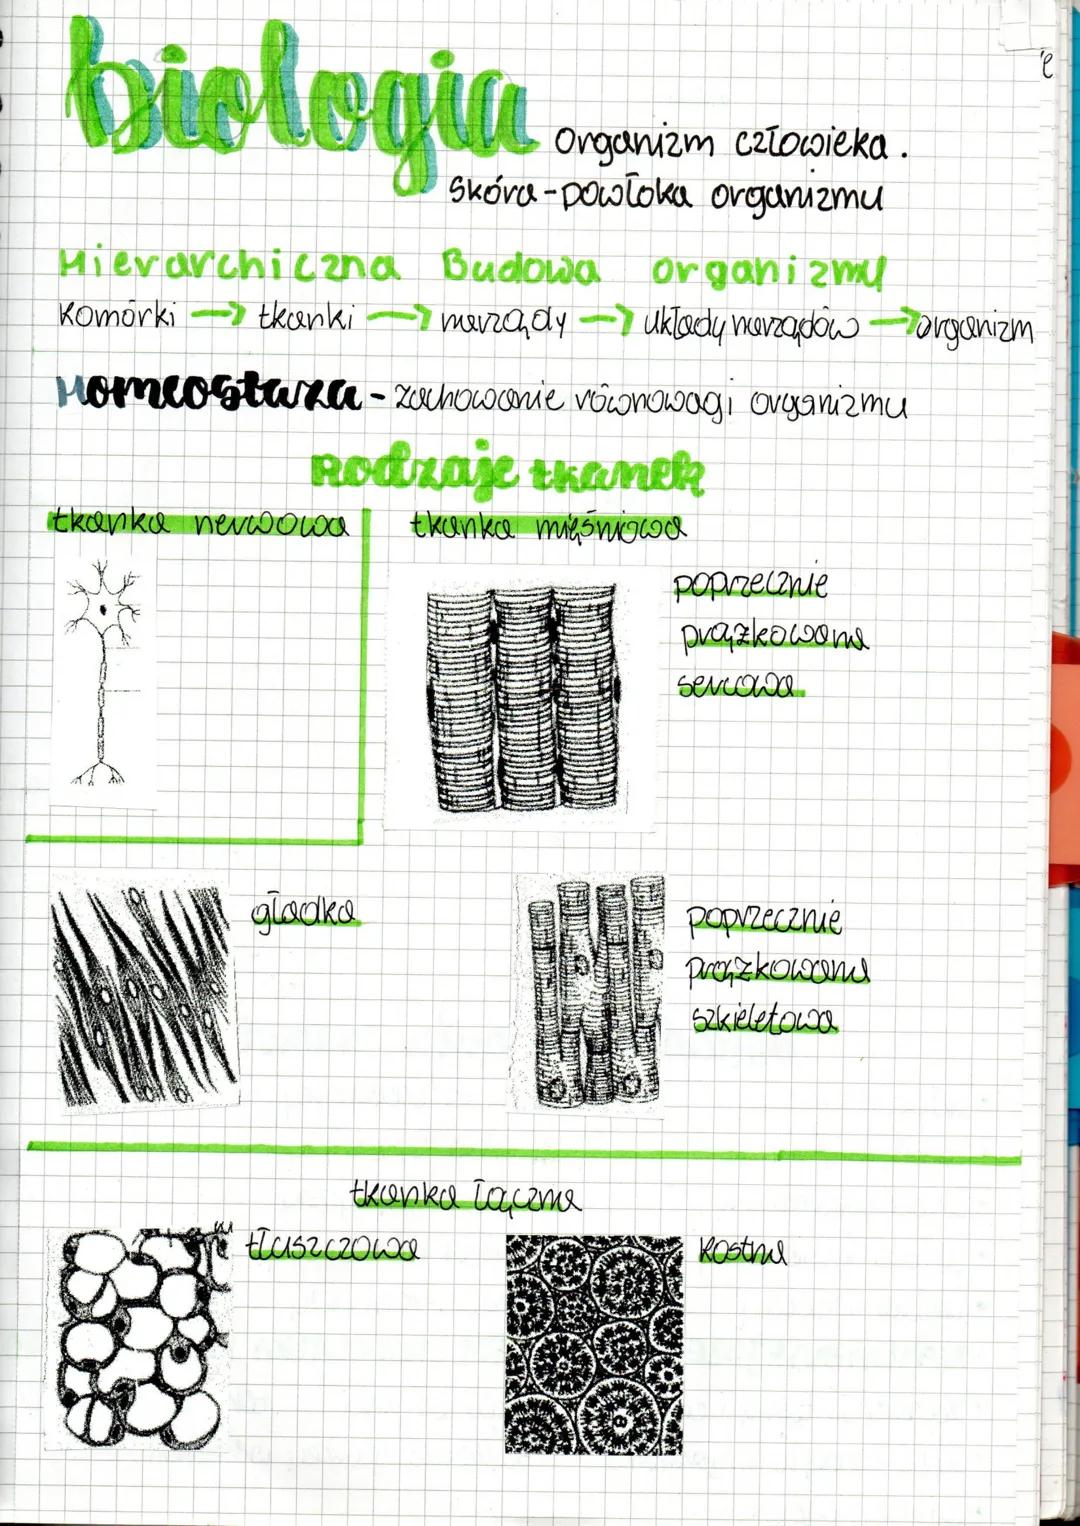 biologia
Organizm człowieka.
Skóra - powłoka organizmu
Hierarchiczna Budowa organizmu
Komórki → tkanki → narządy → układy narządów → organizm
Homeostaza - zachowanie równowagi organizmu
Rodzaje tkanek
tkanka nerwowa
tkanka mięśniowa
poprzecznie
prążkowana
sercowa
gładka
poprzecznie
prążkowana
szkieletowa
tkanka łączna
tłuszczowa
kostna